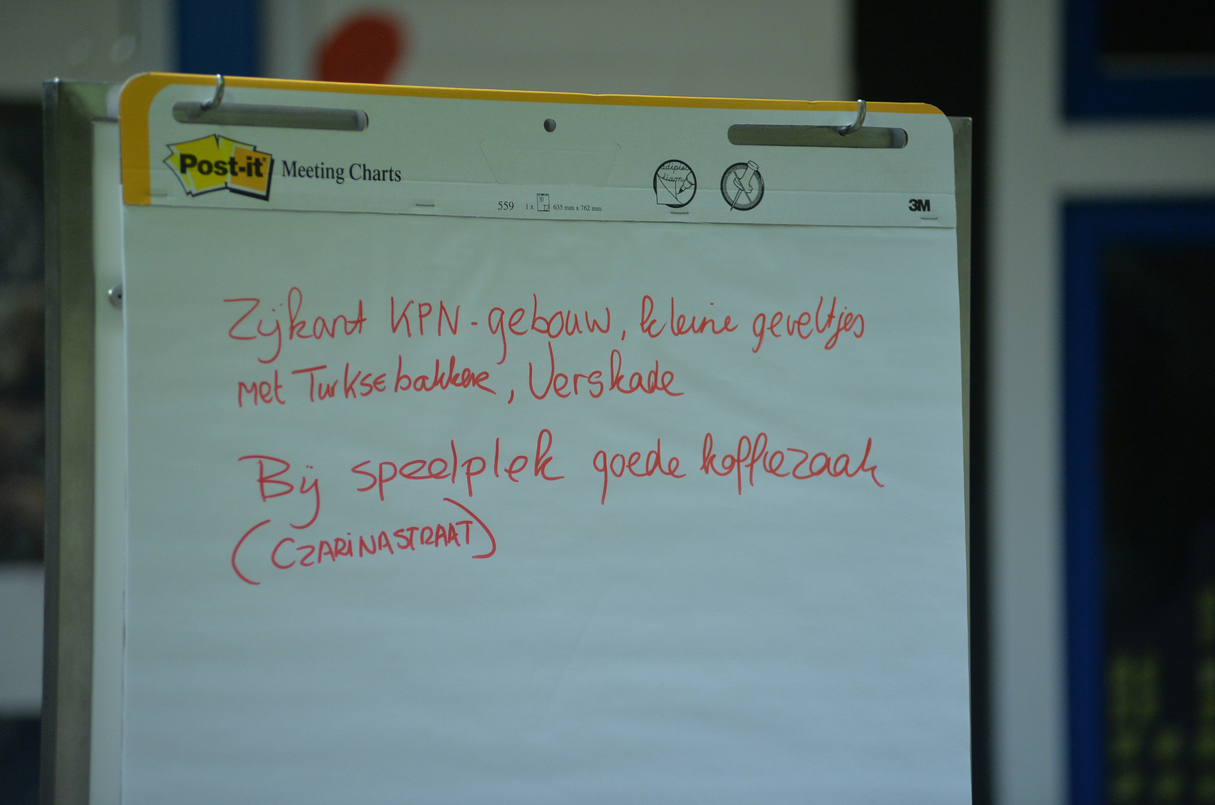 Post-it® Meeting Charts
559 1 x 635 mm x 762 mm
3M
Zijkant KPN-gebouw, kleine geveltjes
met Turkse bakkers, Verskade
Bij speelplek goede koffiezaak
(CZARINASTRAAT)